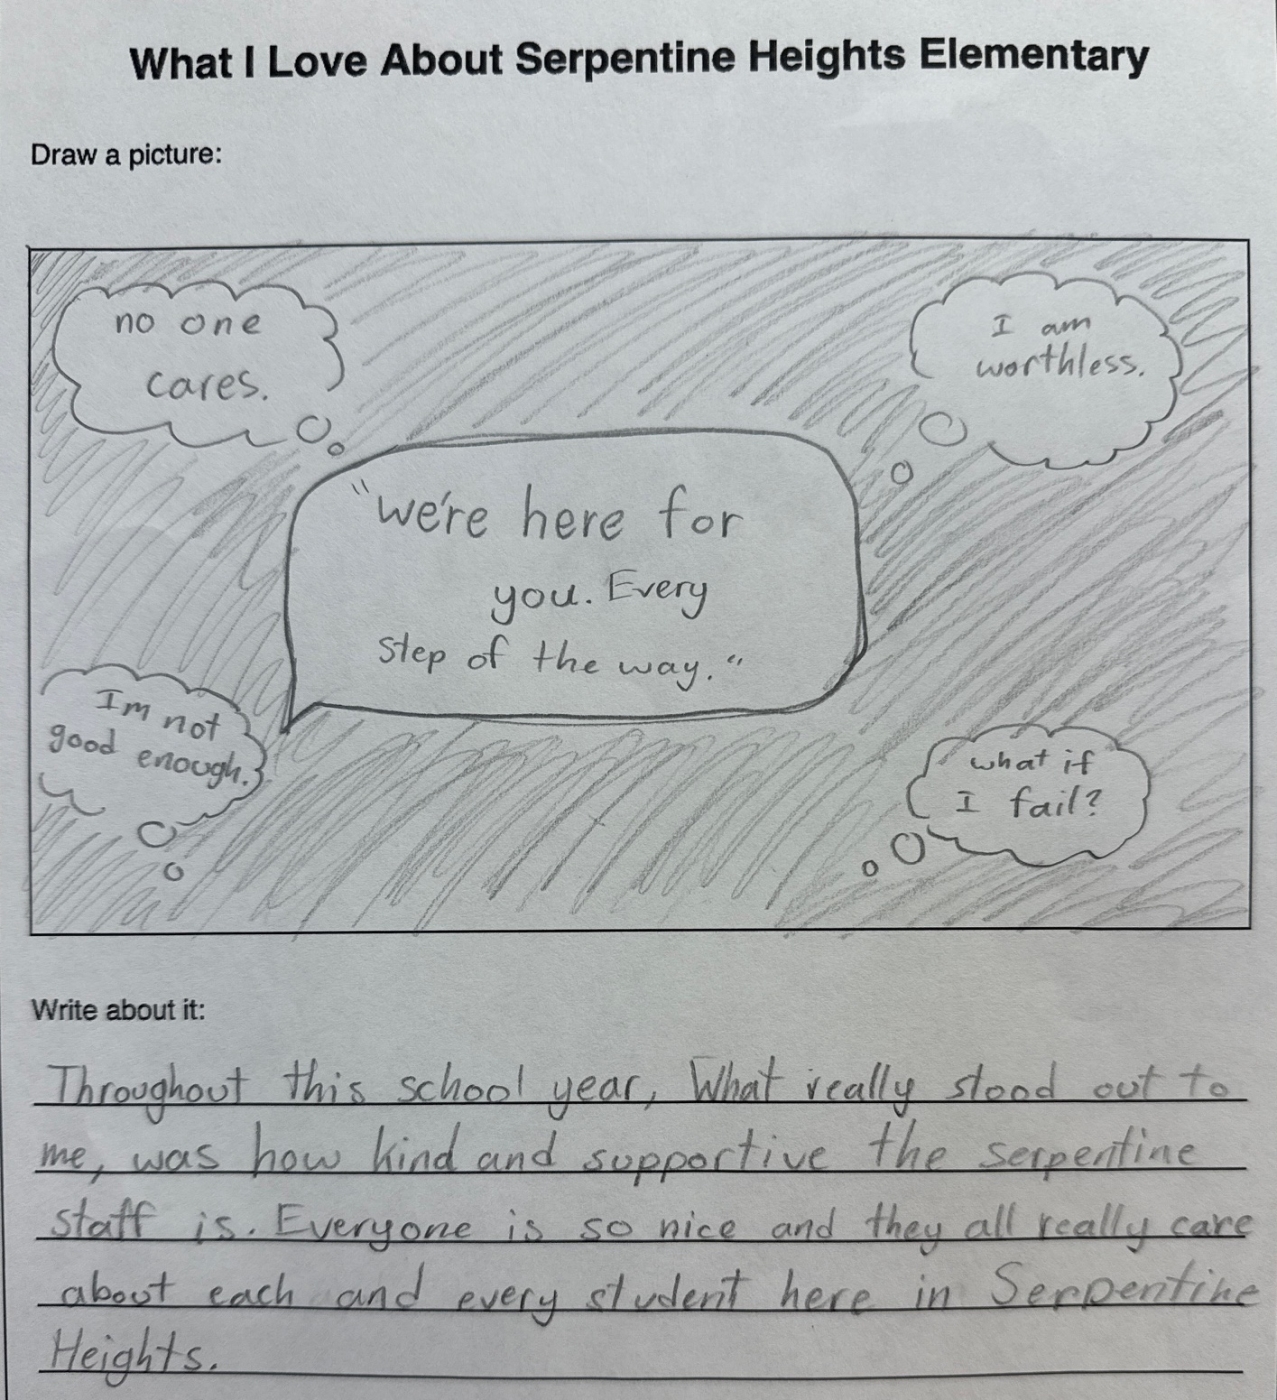 What I Love About Serpentine Heights Elementary
Draw a picture:
no one
cares.
I am
worthless.
"we're here for
you. Every
step of the way."
Im not
good enough.
what if
I fail?
Write about it:
Throughout this school year, What really stood out to
me, was how kind and supportive the serpentine
staff is. Everyone is so nice and they all really care
about each and every student here in Serpentine
Heights.